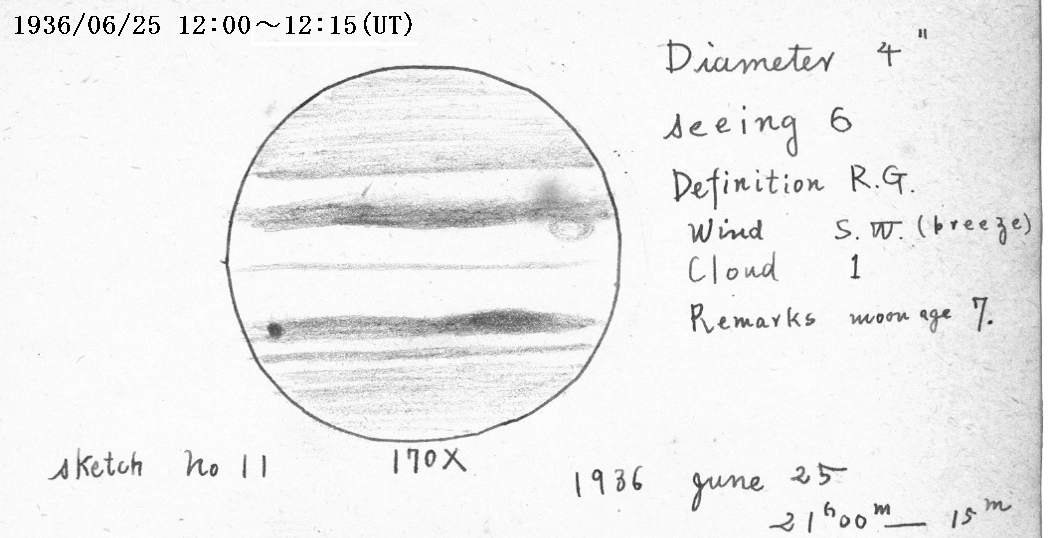 1936/06/25 12:00～12:15(UT)
Diameter 4"
seeing 6
Definition R.G.
Wind S.W. (breeze)
Cloud 1
Remarks moon age 7.
sketch no 11
170X
1936 june 25
21h00m— 15m